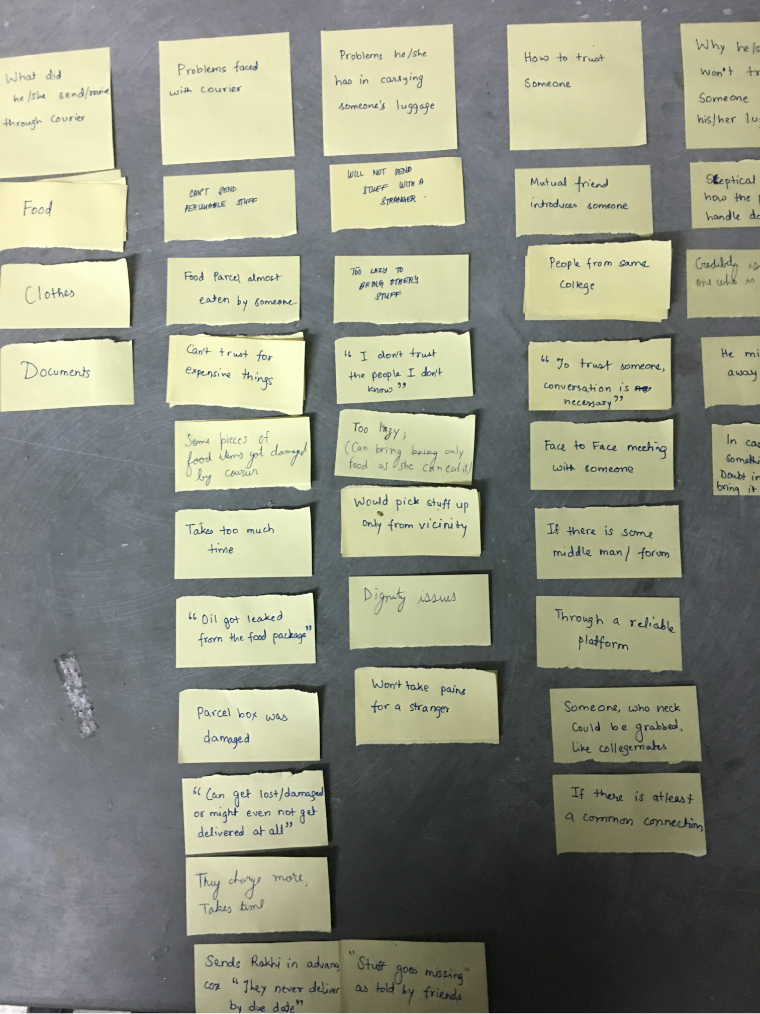 What did
he/she send/receive
through courier
Food
Clothes
Documents
Problems faced
with courier
CAN'T SEND
PERISHABLE STUFF
Food Parcel almost
eaten by someone
Can't trust for
expensive things
Some pieces of
food items got damaged
by courier
Takes too much
time
"Oil got leaked
from the food package"
Parcel box was
damaged
"Can get lost/damaged
or might even not get
delivered at all"
They charge more,
Takes time
Sends Rakhi in advanc
coz "They never deliver
by due date"
"Stuff goes missing"
as told by friends
Problems he/she
has in carrying
someone's luggage
WILL NOT SEND
STUFF WITH A
STRANGER.
TOO LAZY TO
BRING OTHER'S
STUFF
"I don't trust
the people I don't
know"
Too lazy;
(Can bring being only
food as she can eat it)
Would pick stuff up
only from vicinity
Dignity issues
Won't take pains
for a stranger
How to trust
Someone
Mutual friend
introduces someone
People from same
college
"To trust someone,
conversation is
necessary"
Face to Face meeting
with someone
If there is some
middle man/ forum
Through a reliable
platform
Someone, who neck
could be grabbed,
like collegemates
If there is atleast
a common connection
Why he/s
won't tr
Someone
his/her lug
Skeptical
how the p
handle do
Credibility is
one who is
He mi
away
In cas
somethi
Doubt in
bring it